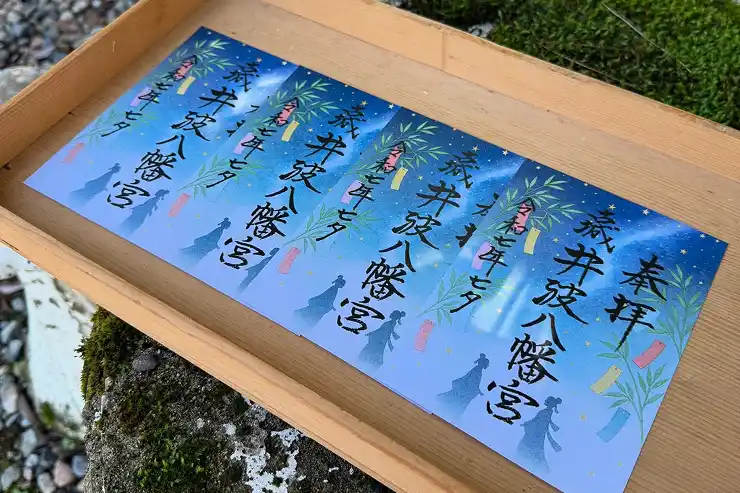 奉拝
歳井波八幡宮
令和七年七夕
歳井波八幡宮
令和七年七夕
歳井波八幡宮
令和七年七夕
歳井波八幡宮
令和七年七夕